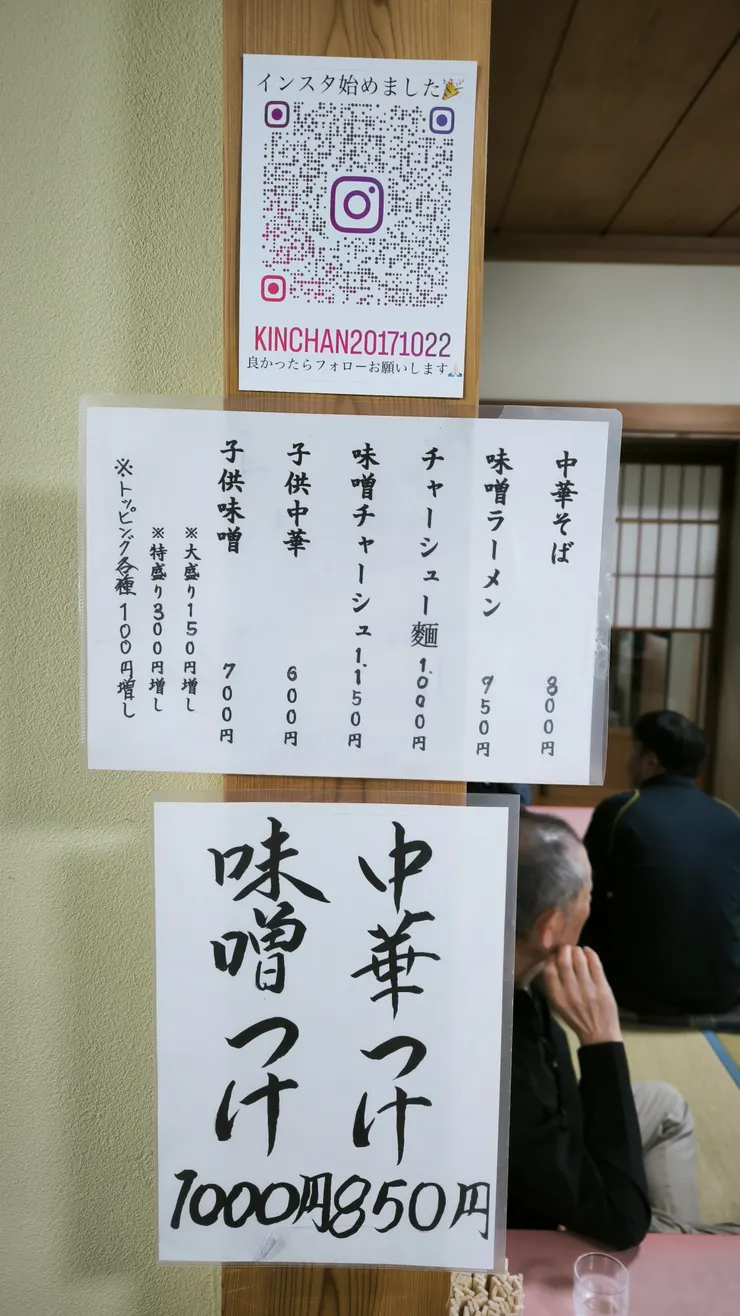 インスタ始めました🎉
KINCHAN20171022
良かったらフォローお願いします🙏🏻
中華そば 800円
味噌ラーメン 950円
チャーシュー麺 1.000円
味噌チャーシュ 1.150円
子供中華 600円
子供味噌 700円
※大盛り150円増し
※特盛り300円増し
※トッピング各種100円増し
中華つけ 850円
味噌つけ 1000円